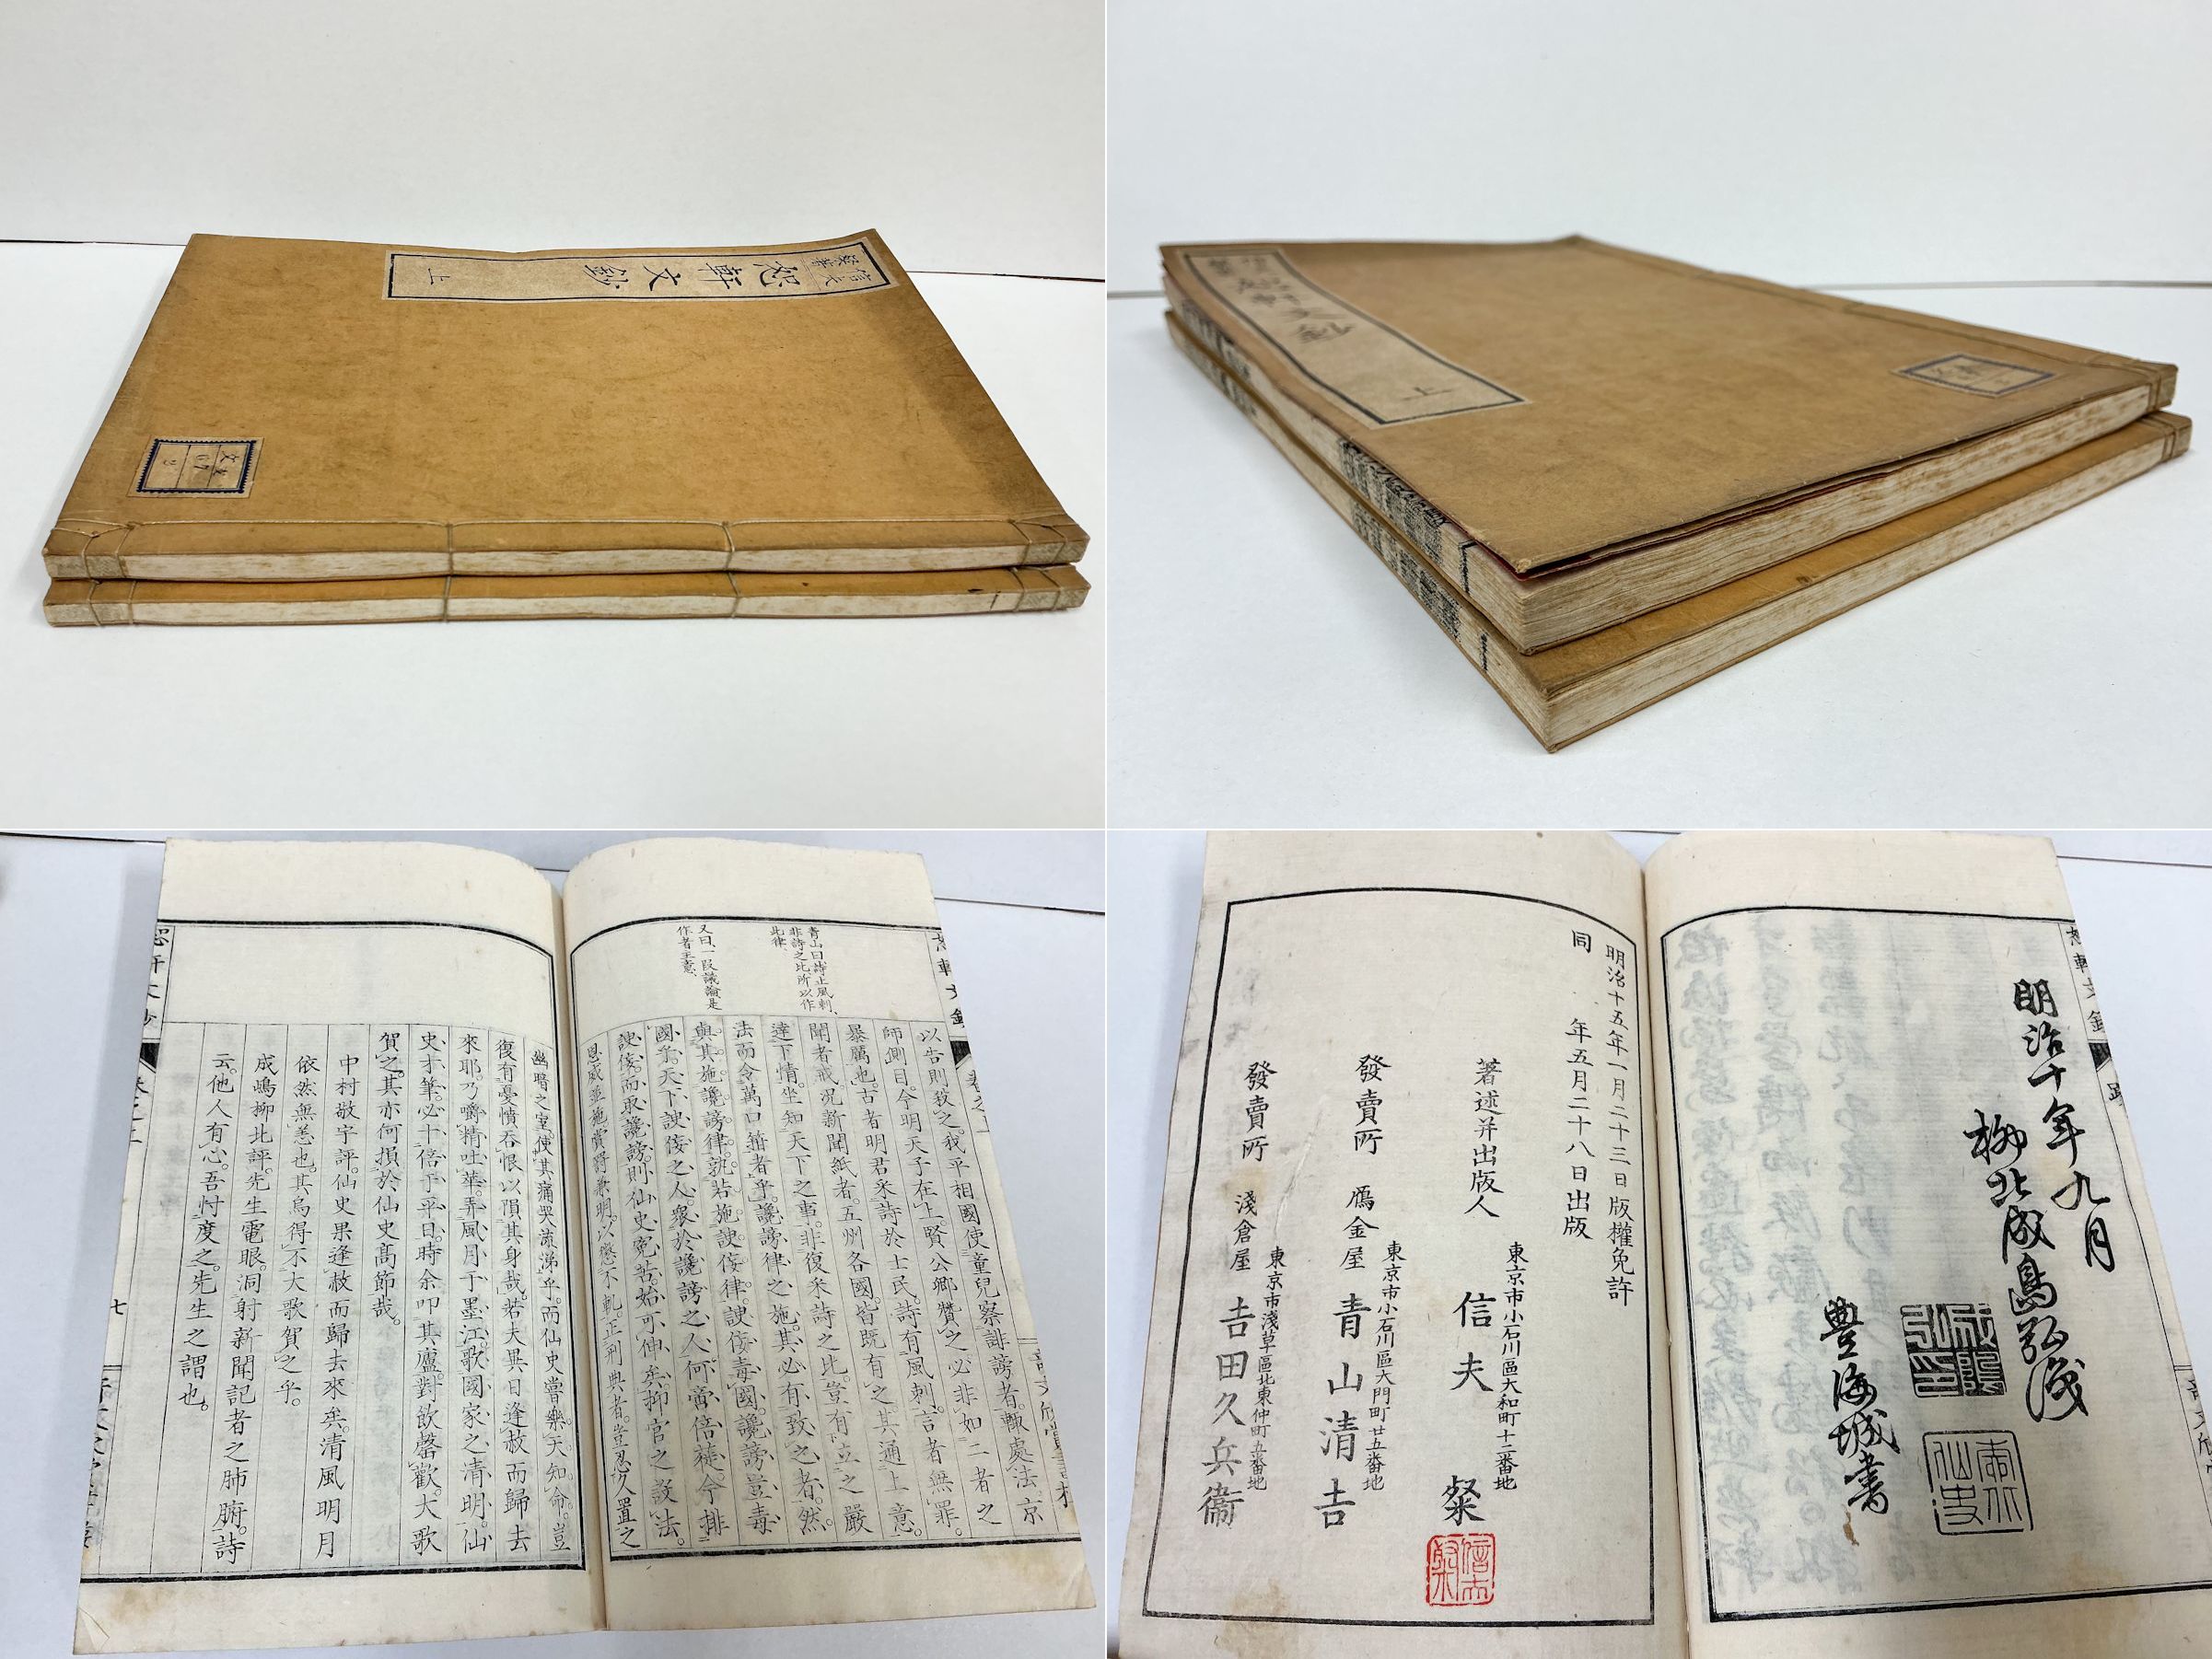 信夫
粲著
恕軒文鈔
上
上
以告則我之我平相國使童兒察誹謗者輒處法京
師側目今明天子在上賢公卿贊之必非如二者之
暴厲也古者明君采詩於士民詩有風刺言者無罪
聞者戒況新聞紙者五州各國皆既有之其通上意
達下情坐知天下之事非復采詩之比豈有立之嚴
法而令萬口箝者乎讒謗律之施其必有致之者然
與其施讒謗律孰若施諛佞律諛佞毒國讒謗豈毒
國乎天下諛佞之人衆於讒謗之人何啻倍蓰今排
諛佞而取讒謗則仙史冤苦始可伸矣抑官之設法
恩威並施賞罰兼明以懲不軌正刑典者豈忍以人置之
青山曰詩止風刺
非詩之比所以作
此律
又曰一段議論是
作者主意
幽暗之室使其痛哭流涕乎而仙史嘗樂天知命豈
復有憂憤吞恨以隕其身哉若夫異日逢赦而歸去
來耶乃嚼精吐華弄風月于墨江歌國家之清明仙
史才筆必十倍于平日時余叩其廬對飲罄歡大歌
賀之其亦何損於仙史高節哉
中村敬宇評仙史果逢赦而歸去來矣清風明月
依然無恙也其烏得不大歌賀之乎
成嶋柳北評先生電眼洞射新聞記者之肺腑詩
云他人有心吾忖度之先生之謂也
七
明治十年九月
柳北成島弘淺
豐海城書
明治十五年一月二十三日版權免許
同年五月二十八日出版
著述并出版人
東京市小石川區大和町十二番地
信夫粲
發賣所
鴈金屋
東京市小石川區大門町廿五番地
青山清吉
發賣所
淺倉屋
東京市淺草區北東仲町五番地
吉田久兵衞
信夫粲